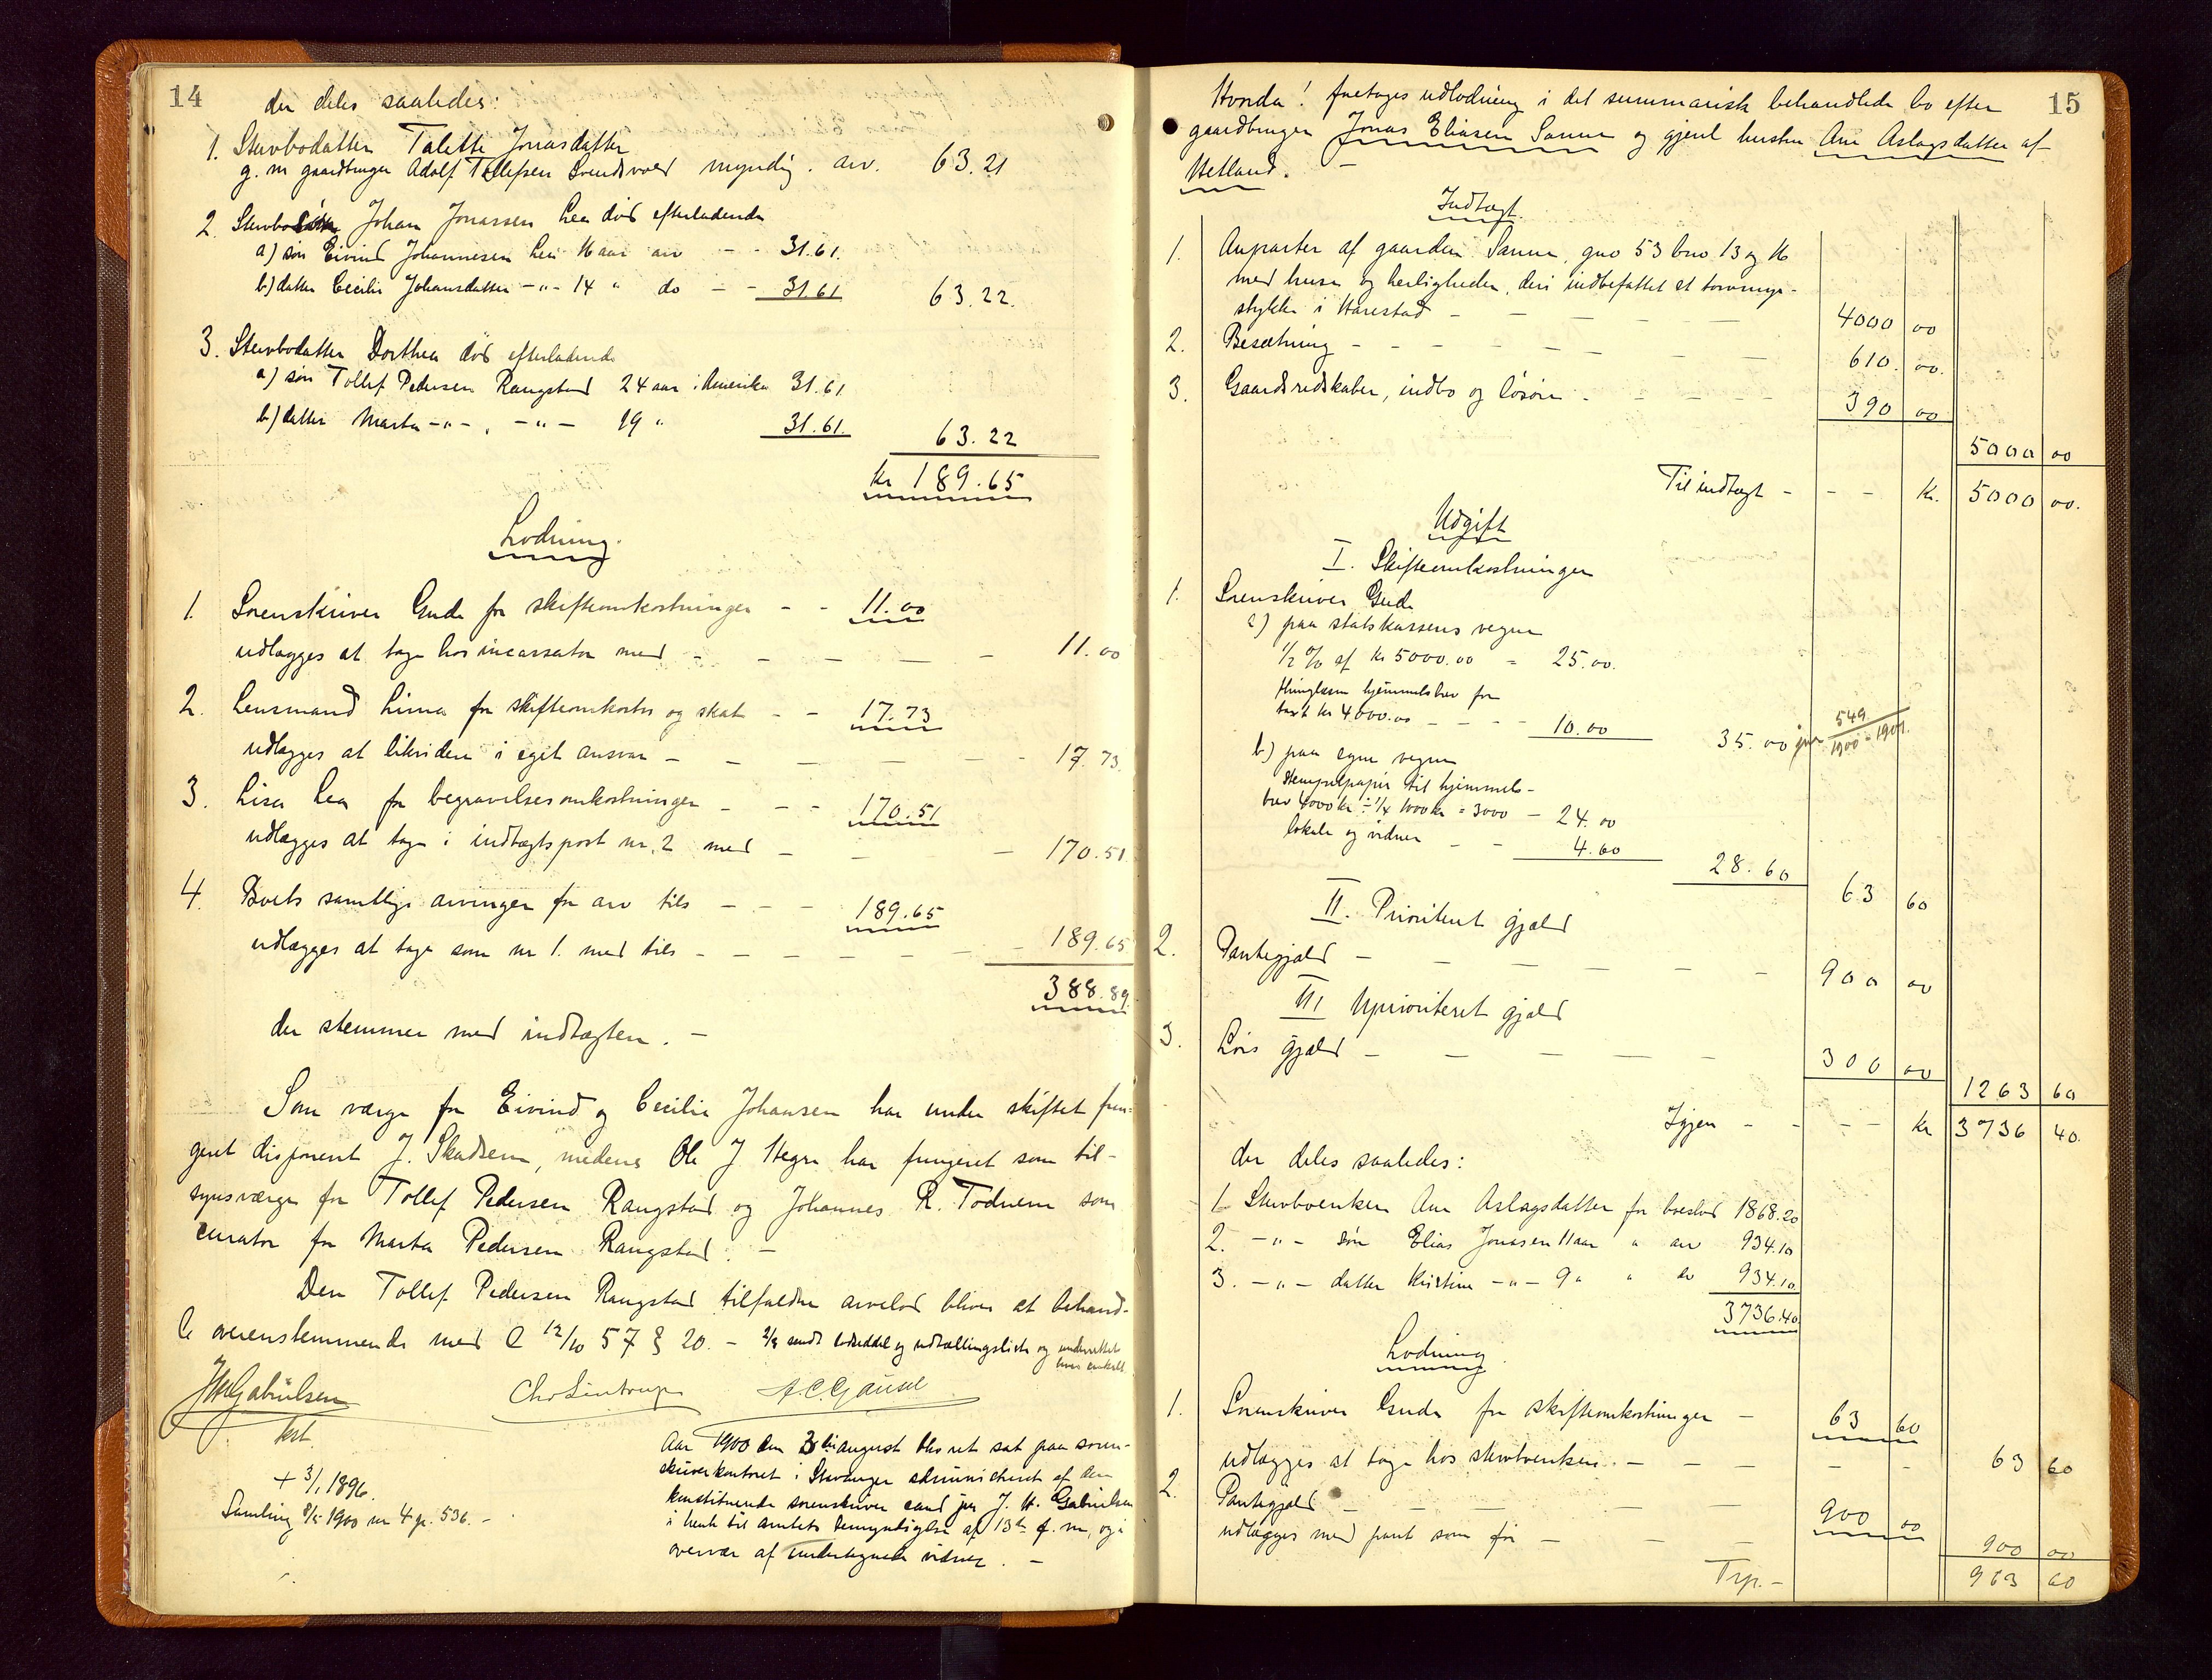 14
der deles saaledes:
1. Stervbodatter Talette Jonasdatter
g. m gaardbruger Adolf Tollefsen Svendsvold myndig. arv. 63.21
2. Stervbosøn Johan Jonassen Lea død efterladende
a) søn Eivind Johannesen Lea 16 aar arv - - 31.61.
b) datter Cecilie Johansdatter -"- 14 " do - - 31.61 63.22.
3. Stervbodatter Dorthea død efterladende
a) søn Tollef Pedersen Rangstad 24 aar i Amerika 31.61
b) datter Marta -"- , -"- 19 " 31.61. 63.22
kr 189.65
Lodning.
1. Sorenskriver Gude for skifteomkostninger - - 11.00
udlægges at tage hos incassator med - - - - - 11.00
2. Lensmand Lima for skifteomkostn og skat - - 17.73
udlægges at likvidere i eget ansvar - - - - - - 17.73.
3. Lisa Lea for begravelsesomkostninger - - - 170.51
udlægges at tage i indtægtspost nr. 2 med - - - 170.51
4. Boets samtlige arvinger for arv tils - - - 189.65
udlægges at tage som nr 1. med tils - - - - - - 189.65
388.89.
der stemmer med indtægten. -
Som værge for Eivind og Cecilie Johansen har under skiftet fun-
geret disponent J. Skadsem, medens Ole J Hegre har fungeret som til-
synsværge for Tollef Pedersen Rangstad og Johannes R. Todnem som
curator for Marta Pedersen Rangstad. -
Den Tollef Pedersen Rangstad tilfaldne arvelod bliver at behand-
le overenstemmende med L 12/10 57 § 20. - 2/8 sendt lodseddel og udtællingsliste og underrettet
hver enkelt
JHGabrielsen Chr Lintrup A.C. Gausel
kst.
+ 3/1 1896.
Samling 8/5 1900 nr 4 p. 536. -
Aar 1900 den 3die august blev ret sat paa soren-
skriverkontoret i Stavanger administreret af den
konstituerede sorenskriver cand jur J. H. Gabrielsen
i henh til amtets bemyndigelse af 13de f. m, og i
overvær af undertegnede vidner. -
15
Hvorda! foretages udlodning i det summarisk behandlede bo efter
gaardbruger Jonas Eliasen Sanne og gjenl hustru Ane Aslagsdatter af
Hetland. -
Indtægt.
1. Anparter af gaarden Sanne, gno 53 bno 13 og 16
med huse og herligheder, deri indbefattet et torvmyr-
stykke i Harestad - - - - - 4000 00
2. Besætning - - - - - - - - 610. 00.
3. Gaardsredskaber, indbo og løsøre - - - - - 390 00
5000 00
Til indtægt - - - kr. 5000 00.
Udgift
I. Skifteomkostninger
1. Sorenskriver Gude
a) paa statskassens vegne
1/2 % af kr 5000.00 = 25.00.
thinglæsn hjemmelsbrev for
taxt kr 4000.00 - - - - 10.00 35.00 jnr 549/1900-1901.
b) paa egne vegne
stempelpapir til hjemmels-
brev 4000 kr ÷ 1/4 1000 kr = 3000 - 24.00
lokale og vidner - - 4.60
28.60 63 60
II. Prioriteret gjæld
2. Pantegjæld - - - - - - - 900 00
III Uprioriteret gjæld
3. Løs gjæld - - - - - 300 00
1263 60
Igjen - - - - kr 3736 40.
der deles saaledes:
1. Stervboenken Ane Aslagsdatter for boeslod 1868.20
2. -"- søn Elias Jonasen 11 aar " arv 934.10
3. -"- datter Kristine -"- 9 " " do 934.10
3736.40
Lodning.
1. Sorenskriver Gude for skifteomkostninger - 63 60
udlægges at tage hos stervboenken. - - - - - 63 60
2. Pantegjæld - - - - - 900 00
udlægges med pant som før - - - 900 00
Trp. - 963 60